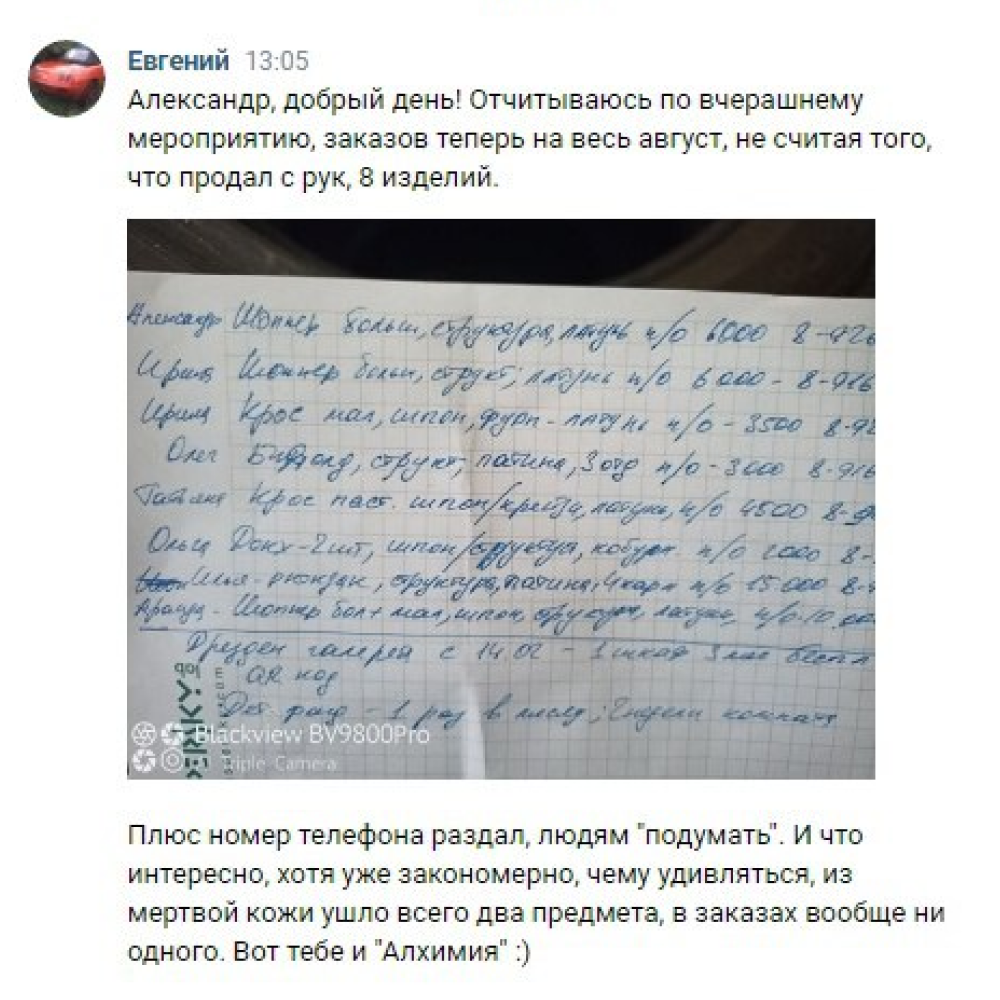 Евгений 13:05
Александр, добрый день! Отчитываюсь по вчерашнему
мероприятию, заказов теперь на весь август, не считая того,
что продал с рук, 8 изделий.
Александр Шоппер больш, структура, латунь п/о 6000 8-926
Ирина Шоппер больш, структ, латунь п/о 6000 - 8-916
Ирина Крос мал, шпон, латунь п/о - 3500
Олег Бифолд, структ, патина, 3 отд п/о - 3000 8-916
Татьяна Крос паст. шпон/крейзи, латунь, п/о 4500
Ольга 2шт, шпон/структура, п/о
Илья - рюкзак, структура, патина, 4 карм п/о 15.000
Шоппер бол + мал, шпон, латунь, п/о 10.000
Дрезден галерея с 14.02 - 1
QR код
- 1 раз в
Blackview BV9800Pro
Triple Camera
Плюс номер телефона раздал, людям "подумать". И что
интересно, хотя уже закономерно, чему удивляться, из
мертвой кожи ушло всего два предмета, в заказах вообще ни
одного. Вот тебе и "Алхимия" :)